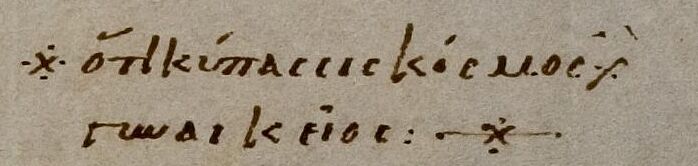 ※ ὅτι κύπασσις κόσμος
γυναικεῖος: ※